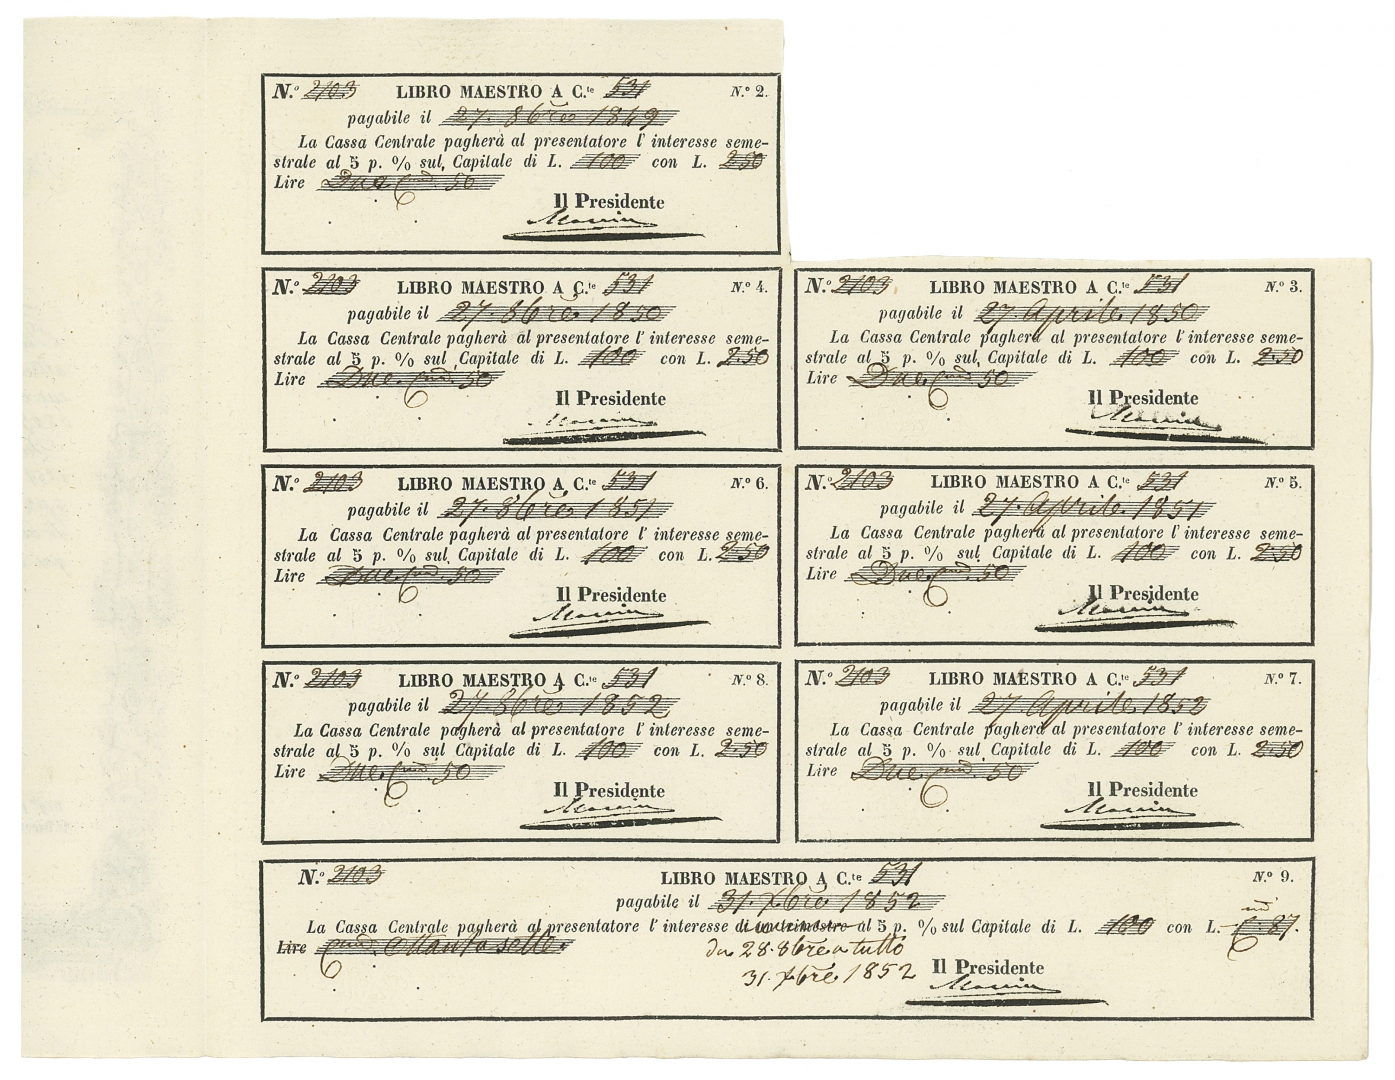 N.º 2103 LIBRO MAESTRO A C.te 531 N.º 2.
pagabile il 27. 8bre 1849
La Cassa Centrale pagherà al presentatore l' interesse seme-
strale al 5 p. % sul Capitale di L. 100 con L. 2.50
Lire Due Cmi. 50
Il Presidente
N.º 2103 LIBRO MAESTRO A C.te 531 N.º 4.
pagabile il 27. 8bre 1850
La Cassa Centrale pagherà al presentatore l' interesse seme-
strale al 5 p. % sul Capitale di L. 100 con L. 2.50
Lire Due. Cmi. 50
Il Presidente
N.º 2103 LIBRO MAESTRO A C.te 531 N.º 3.
pagabile il 27. Aprile. 1850
La Cassa Centrale pagherà al presentatore l' interesse seme-
strale al 5 p. % sul Capitale di L. 100 con L. 2.50
Lire Due. Cmi. 50
Il Presidente
N.º 2103 LIBRO MAESTRO A C.te 531 N.º 6.
pagabile il 27. 8bre 1851
La Cassa Centrale pagherà al presentatore l' interesse seme-
strale al 5 p. % sul Capitale di L. 100 con L. 2.50
Lire Due. Cmi. 50
Il Presidente
N.º 2103 LIBRO MAESTRO A C.te 531 N.º 5.
pagabile il 27. Aprile. 1851
La Cassa Centrale pagherà al presentatore l' interesse seme-
strale al 5 p. % sul Capitale di L. 100 con L. 2.50
Lire Due. Cmi. 50
Il Presidente
N.º 2103 LIBRO MAESTRO A C.te 531 N.º 8.
pagabile il 27. 8bre 1852
La Cassa Centrale pagherà al presentatore l' interesse seme-
strale al 5 p. % sul Capitale di L. 100 con L. 2.50
Lire Due. Cmi. 50
Il Presidente
N.º 2103 LIBRO MAESTRO A C.te 531 N.º 7.
pagabile il 27. Aprile. 1852
La Cassa Centrale pagherà al presentatore l' interesse seme-
strale al 5 p. % sul Capitale di L. 100 con L. 2.50
Lire Due. Cmi. 50
Il Presidente
N.º 2103 LIBRO MAESTRO A C.te 531 N.º 9.
pagabile il 31. Xbre 1852
La Cassa Centrale pagherà al presentatore l' interesse di un trimestre al 5 p. % sul Capitale di L. 100 con L. Cmi 87.
Lire Cmi. Ottantasette.
da 28. 8bre a tutto
31. Xbre 1852
Il Presidente